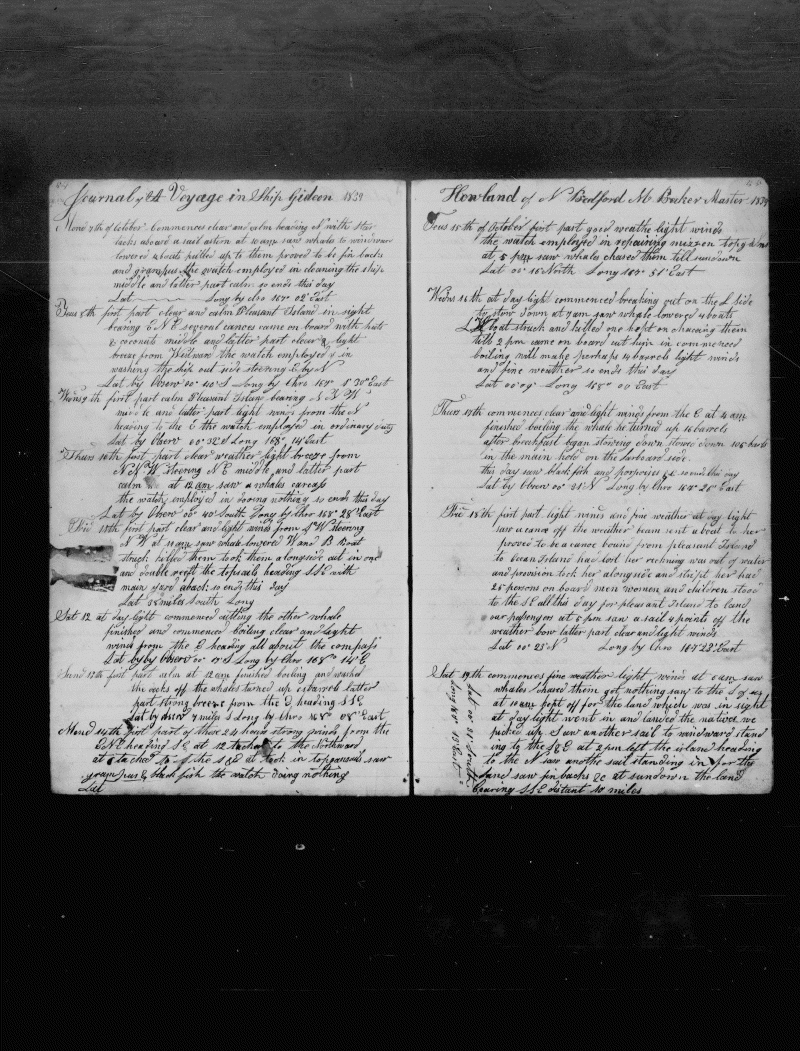 Journal of A Voyage in Ship Gideon 1839
Mond 7th of October Commences clear and calm heading N with star
tacks aboard a sail astern at 10 am saw whales to windward
lowered 4 boats pulled up to them proved to be fin backs
and grampus the watch employed in cleaning the ship
middle and latter part calm so ends this day
Lat Long by Chro 168° 02' East
Tues 8th first part clear and calm Pleasant Island in sight
bearing E N E several canoes came on board with
& cocoanuts middle and latter part clear & light
breeze from the watch employed in
washing the ship out side steering E by N
Lat by Obser 00° 40' S Long by Chro East
Wens 9th first part calm Pleasant Island bearing N W
middle and latter part light winds from the N
heading to the E the watch employed in ordinary duty
Lat by Obser 00° Long 168° 14' East
Thurs 10th first part clear weather light breeze from
N N W steering N E middle and latter part
calm at 12 am saw a whales carcass
the watch employed in dooing nothing so ends this day
Lat by Obser 00° 40' South Long by Chro 168° 28' East
Fri 11th first part clear and light winds from steering
N W at 10 am saw whales lowered W and B Boat
struck killed them took them alongside cut in one
and double reeft the topsails heading SSE with
main yard aback so ends this day
Lat miles South Long
Sat 12 at day light commenced cutting the other whale
finished and commenced boiling clear and light
winds from the E heading all about the compass
Lat by Obser 00° S Long by Chro 168° 14' E
Sund 13th first part calm at 12 am finished boiling and washed
the decks off the whales turned up barrels latter
part strong breeze from the E heading SSE
Lat by Obser 7 miles S Long by Chro 168° 08' East
Mond 14th first part of these 24 hours strong winds from the
ENE heading SE at 12 tacked to the Northward
at tacked to the S & E at took in topgansails saw
grampus & black fish the watch doing nothing
Lat
Howland of N Bedford M Baker Master 1839
Tues 15th of October first part good weathe light winds
the watch employed in repairing mizzen topgalns
at 5 pm saw whales chased them till sundown
Lat 00° 16' North Long 167° 51' East
Wedns 16th at day light commenced breaking out on the L side
to stow down at 7 am saw whale lowered 4 boats
boat struck and killed one kept on chaceing them
till 2 pm came on board cut him in commenced
boiling will make perhaps 14 barels light winds
and fine weather so ends this day
Lat 00° 09' Long 168° 00' East
Thurs 17th commences clear and light winds from the E at 4 am
finished boiling the whale he turned up 16 barels
after breakfast began stowing down stowed down barls
in the main hold on the larboard side
this day saw black fish and porpoises &c so ends this day
Lat by Obser 00° 31' N Long by Chro 167° 26' East
Fri 18th first part light winds and fine weather at day light
saw a canoe off the weather beam sent a boat to her
proved to be a canoe bound from pleasant Island
to Ocean Island had lost her reckning was out of water
and provision took her alongside and stript her had
25 persons on board men women and children stood
to the SE all this day for pleasant Island to land
our passengers at 5 pm saw a sail 4 points off the
weather bow latter part clear and light winds
Lat 00° 23' N Long by Chro 167° 22' East
Sat 19th commences fine weather light winds at 6 am saw
whales chased them got nothing sany to the S of us
at 10 am kept off for the land which was in sight
at day light went in and landed the natives we
picked up Saw another sail to windward stand
ing to the S&E at 2 pm left the island heading
to the N saw anothe sail standing in for the
land saw fin backs &c at sundown the land
bearing SSE distant 10 miles
Lat 00° 21' South
Long 168° East